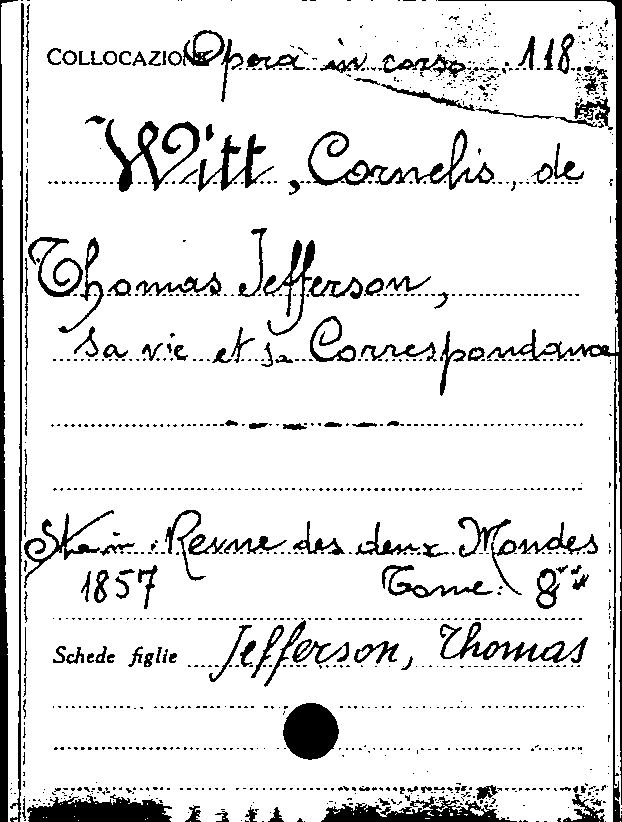 COLLOCAZIONE Opera in corso 118
Witt, Cornelis, de
Thomas Jefferson,
sa vie et sa Correspondance
Sta in: Revue des deux Mondes
1857 Tome: 8
Schede figlie Jefferson, Thomas